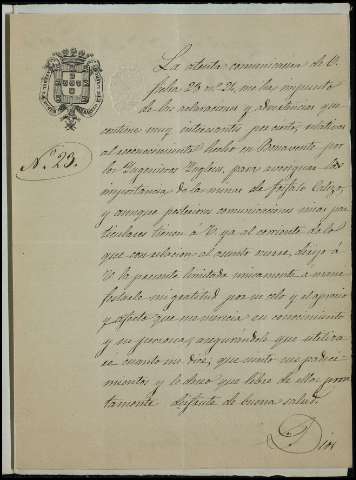 La atenta comunicacion de V.
fecha 23 nº 21, me ha impuesto
de las aclaraciones y advertencias que
contiene muy interesante por cierto, relativas
al reconocimiento hecho en Benavente por
los Ingenieros Ingleses, para averiguar la
importancia de las minas de fosfato Calizo;
Nº 23.
y aunque posteriores comunicaciones mias par-
ticulares tienen á V. ya al corriente de lo
que con relacion al asunto ocurre, dirijo á
V. la presente limitada unicamente á mani-
festarle mi gratitud por su celo y el aprecio
y afecto que me merecen su conocimiento
y su persona, asegurándole que utiliza-
ré cuanto me dice; que siento sus padeci-
mientos y le deseo que libre de ellos pron-
tamente disfrute de buena salud.
Dios